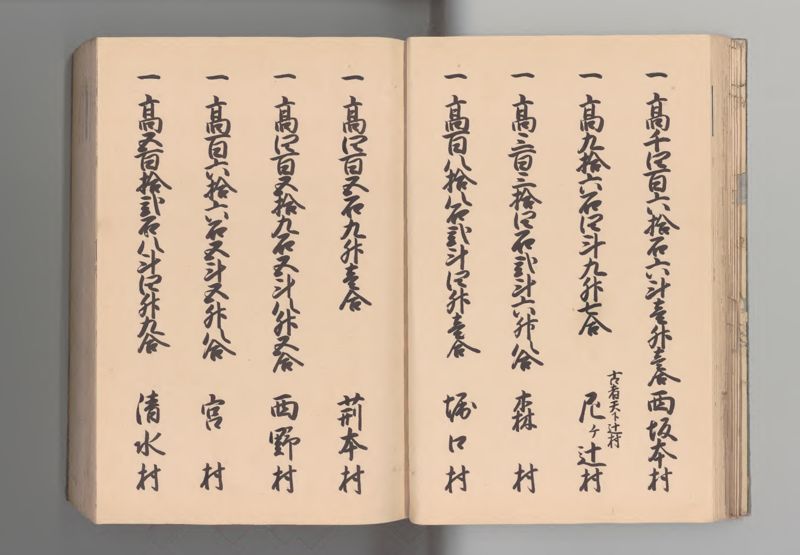 一 高千四百六拾石六斗壱升壱合 西坂本村
一 高九拾六石四斗九升七合 尼ヶ辻村
古者天下辻村
一 高三百三拾四石弐斗六升八合 森村
一 高百八拾八石弐斗四升壱合 堀口村
一 高四百五石九升壱合 荊本村
一 高四百五拾九石五斗八升五合 西野村
一 高百六拾六石五斗五升八合 宮村
一 高五百拾弐石八斗四升九合 清水村